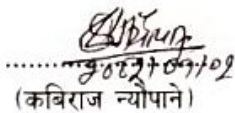 २०८२।०१।०२
(कबिराज न्यौपाने)